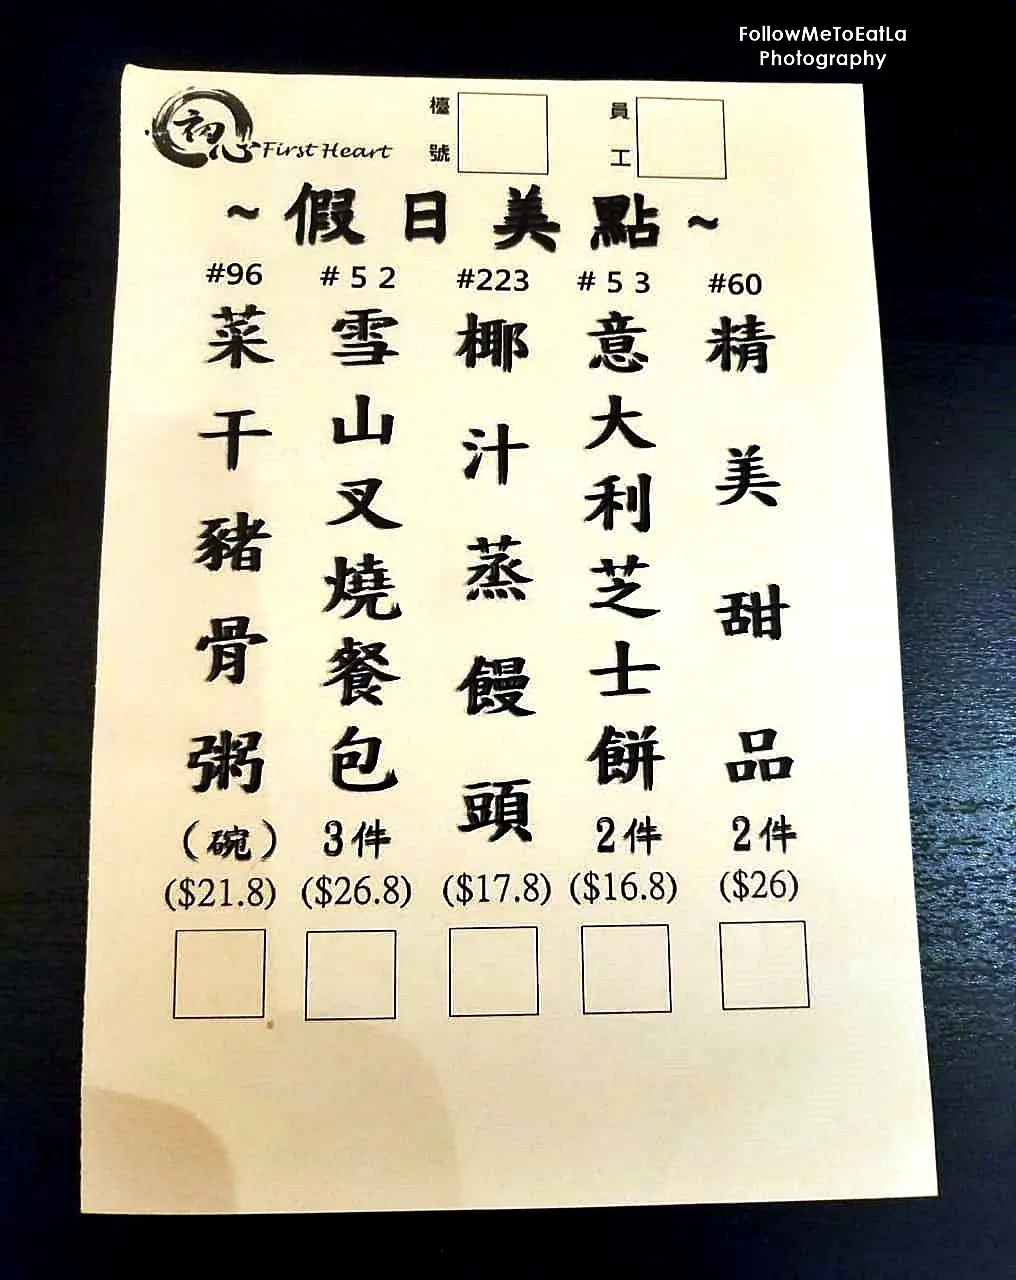 FollowMeToEatLa
Photography
初心 First Heart
檯號
員工
~假日美點~
#96
菜干豬骨粥
(碗)
($21.8)
#52
雪山叉燒餐包
3件
($26.8)
#223
椰汁蒸饅頭
($17.8)
#53
意大利芝士餅
2件
($16.8)
#60
精美甜品
2件
($26)